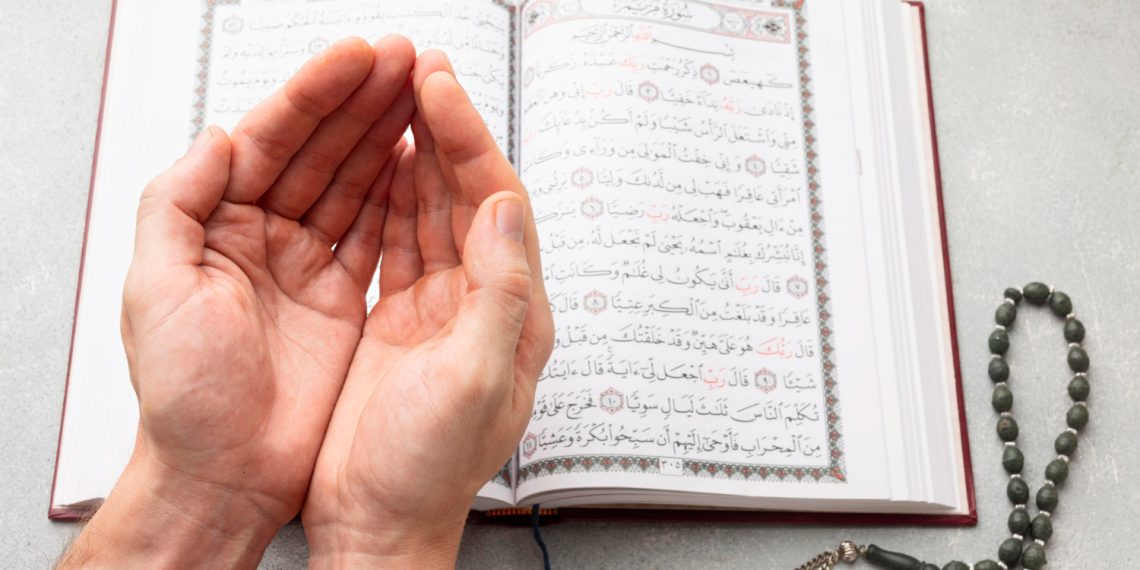 سُورَةُ مَرْيَمَ
بِسْمِ ٱللَّهِ ٱلرَّحْمَٰنِ ٱلرَّحِيمِ
كٓهيعٓصٓ ١ ذِكْرُ رَحْمَتِ رَبِّكَ عَبْدَهُۥ
إِذْ نَادَىٰ رَبَّهُۥ نِدَآءً خَفِيًّا ٣ قَالَ رَبِّ إِنِّى وَهَنَ
مِنِّى وَٱشْتَعَلَ ٱلرَّأْسُ شَيْبًا وَلَمْ أَكُنۢ بِدُعَآئِكَ
شَقِيًّا ٤ وَإِنِّى خِفْتُ ٱلْمَوَٰلِىَ مِن وَرَآءِى
ٱمْرَأَتِى عَاقِرًا فَهَبْ لِى مِن لَّدُنكَ وَلِيًّا ٥ يَرِثُنِى
مِنْ ءَالِ يَعْقُوبَ وَٱجْعَلْهُ رَبِّ رَضِيًّا ٦
إِنَّا نُبَشِّرُكَ بِغُلَٰمٍ ٱسْمُهُۥ يَحْيَىٰ لَمْ نَجْعَل لَّهُۥ مِن قَبْلُ
٧ قَالَ رَبِّ أَنَّىٰ يَكُونُ لِى غُلَٰمٌ وَكَانَتِ
عَاقِرًا وَقَدْ بَلَغْتُ مِنَ ٱلْكِبَرِ عِتِيًّا ٨ قَالَ
قَالَ رَبُّكَ هُوَ عَلَىَّ هَيِّنٌ وَقَدْ خَلَقْتُكَ مِن قَبْلُ
شَيْـًٔا ٩ قَالَ رَبِّ ٱجْعَل لِّىٓ ءَايَةً قَالَ ءَايَتُكَ
تُكَلِّمَ ٱلنَّاسَ ثَلَٰثَ لَيَالٍ سَوِيًّا ١٠ فَخَرَجَ عَلَىٰ
مِنَ ٱلْمِحْرَابِ فَأَوْحَىٰٓ إِلَيْهِمْ أَن سَبِّحُوا۟ بُكْرَةً وَعَشِيًّا ١١
٣٠٥
خُذِ ٱلْكِتَٰبَ بِقُوَّةٍ وَءَاتَيْنَٰهُ ٱلْحُكْمَ صَبِيًّا ١٢
١٣ وَبَرًّۢا بِوَٰلِدَيْهِ وَلَمْ
وَيَوْمَ يَمُوتُ